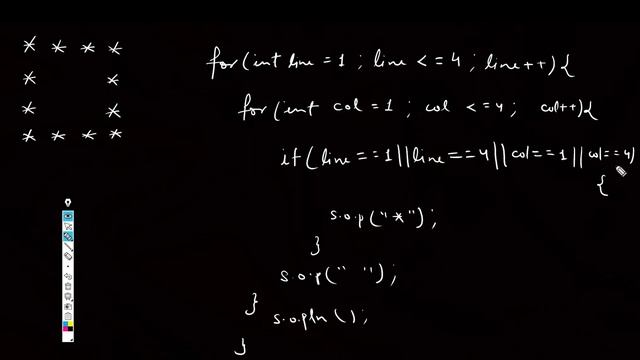 * * * *
* *
* *
* * * *
for(int line = 1 ; line <= 4 ; line++){
for(int col = 1 ; col <= 4 ; col++){
if(line == 1 || line == 4 || col == 1 || col == 4)
{
s.o.p("*");
}
s.o.p(" ");
}
s.o.pln();
}